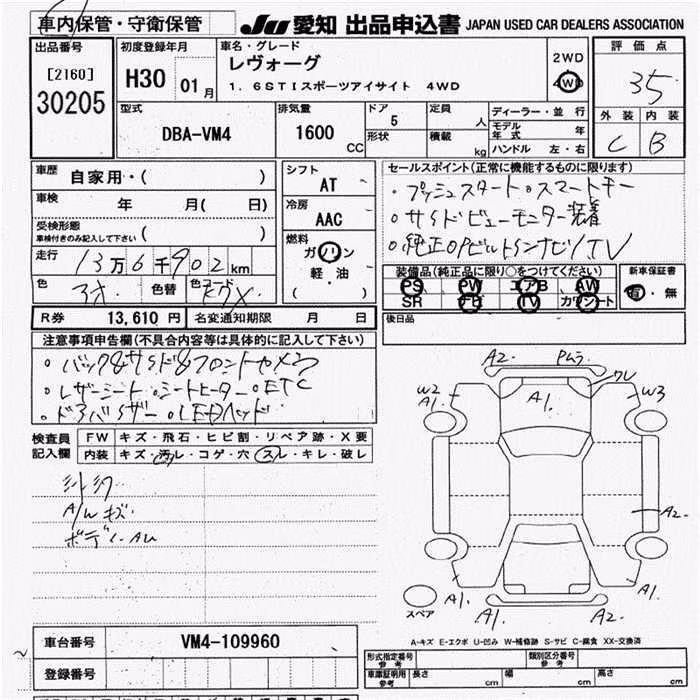 車内保管・守衛保管 JU 愛知 出品申込書 JAPAN USED CAR DEALERS ASSOCIATION
出品番号 初度登録年月 車名・グレード 評価点
[2160] H30 01月 レヴォーグ 2WD
30205 1.6STIスポーツアイサイト 4WD 4WD 35
型式 排気量 ドア 定員 ディーラー・並行 外装 内装
DBA-VM4 1600 CC 5 人 モデル年式 年 C B
形状 積載 kg ハンドル 左・右
車歴 自家用・( ) シフト AT セールスポイント(正常に機能するものに限ります)
車検 年 月( 日) 冷房 AAC ・プッシュスタート・スマートキー
受検形態 ・サイドビューモニター装着
車検付きのみ記入して下さい ( ) 燃料 ・純正OPビルトインナビ/TV
走行 13万6千902km ガソリン
色 色替 色コード 軽・油
( )
装備品(純正品に限り○をつけてください) 新車保証書
PS PW エアB AW 有・無
SR ナビ TV カワシート
R券 13,610円 名変通知期限 月 日 後日品
注意事項申告欄(不具合内容等は具体的に記入して下さい)
・バック&サイド&フロントカメラ
・レザーシート・シートヒーター・ETC
・ドアバイザー・LEDヘッド
検査員記入欄 FW キズ・飛石・ヒビ割・リペア跡・X要
内装 キズ・汚レ・コゲ・穴・スレ・キレ・破レ
A/Wキズ
A2. Pムラ
W2 A1. A1. W3
A2.
A1. A1.
A1. A2.
スペア
A-キズ E-エクボ U-凹み W-補修跡 S-サビ C-腐食 XX-交換済
車台番号 VM4-109960
登録番号
形式指定番号 参考 類別区分番号 参考
車庫証明用 参考 長さ cm 幅 cm 高さ cm